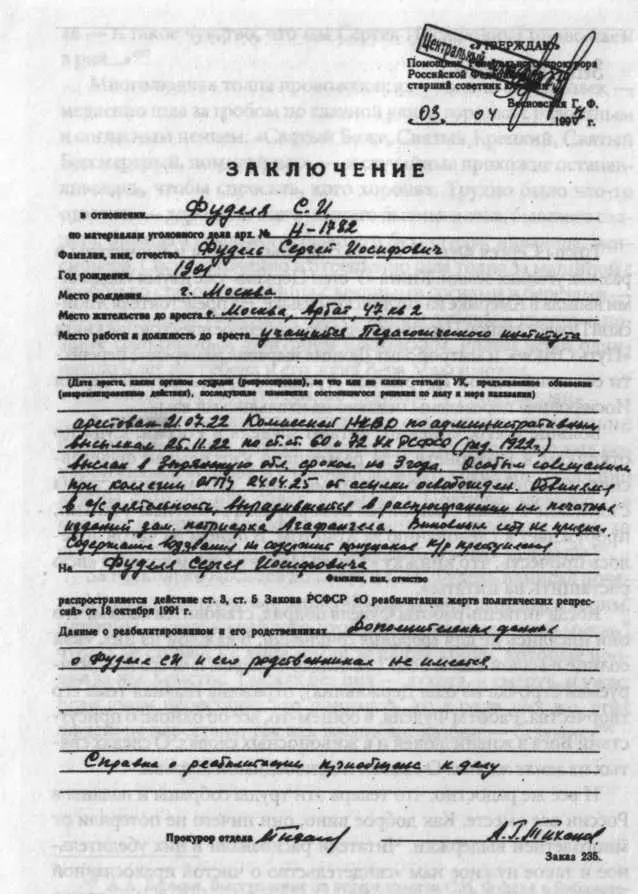 Центральный
«УТВЕРЖДАЮ»
Помощник Генерального прокурора
Российской Федерации
старший советник юстиции
Весновская Г. Ф.
03. 04 1997
ЗАКЛЮЧЕНИЕ
в отношении Фуделя С.И
по материалам уголовного дела арх. № Н-1782
Фамилия, имя, отчество Фудель Сергей Иосифович
Год рождения 1901
Место рождения г. Москва
Место жительства до ареста г. Москва, Арбат, 47 кв 2
Место работы и должность до ареста учащийся Педагогического института
(Дата ареста, каким органом осужден (репрессирован), за что или по каким статьям УК, предъявленное обвинение
(инкриминированные действия), последующие изменения состоявшегося решения по делу и мере наказания)
арестован 21.07.22 Комиссией НКВД по административным
высылкам 25.11.22 по ст.ст. 60 и 72 УК РСФСР (ред. 1922г.)
выслан в Зырянскую обл. сроком на 3 года. Особым совещанием
при коллегии ОГПУ 24.04.25 от ссылки освобожден. Обвинялся
в а/с деятельности, выразившейся в распространении им печатных
изданий патриарха Агафангела. Виновным себя не признал.
Содержание воззвания не содержит признаков к/р преступления
На Фуделя Сергея Иосифовича
Фамилия, имя, отчество
распространяется действие ст. 3, ст. 5 Закона РСФСР «О реабилитации жертв политических репрес-
сий» от 18 октября 1991 г.
Данные о реабилитированном и его родственниках Дополнительных данных
о Фуделе СИ и его родственниках не имеется
Справка о реабилитации приобщена к делу
Прокурор отдела А.Г. Тиханов
Заказ 235.